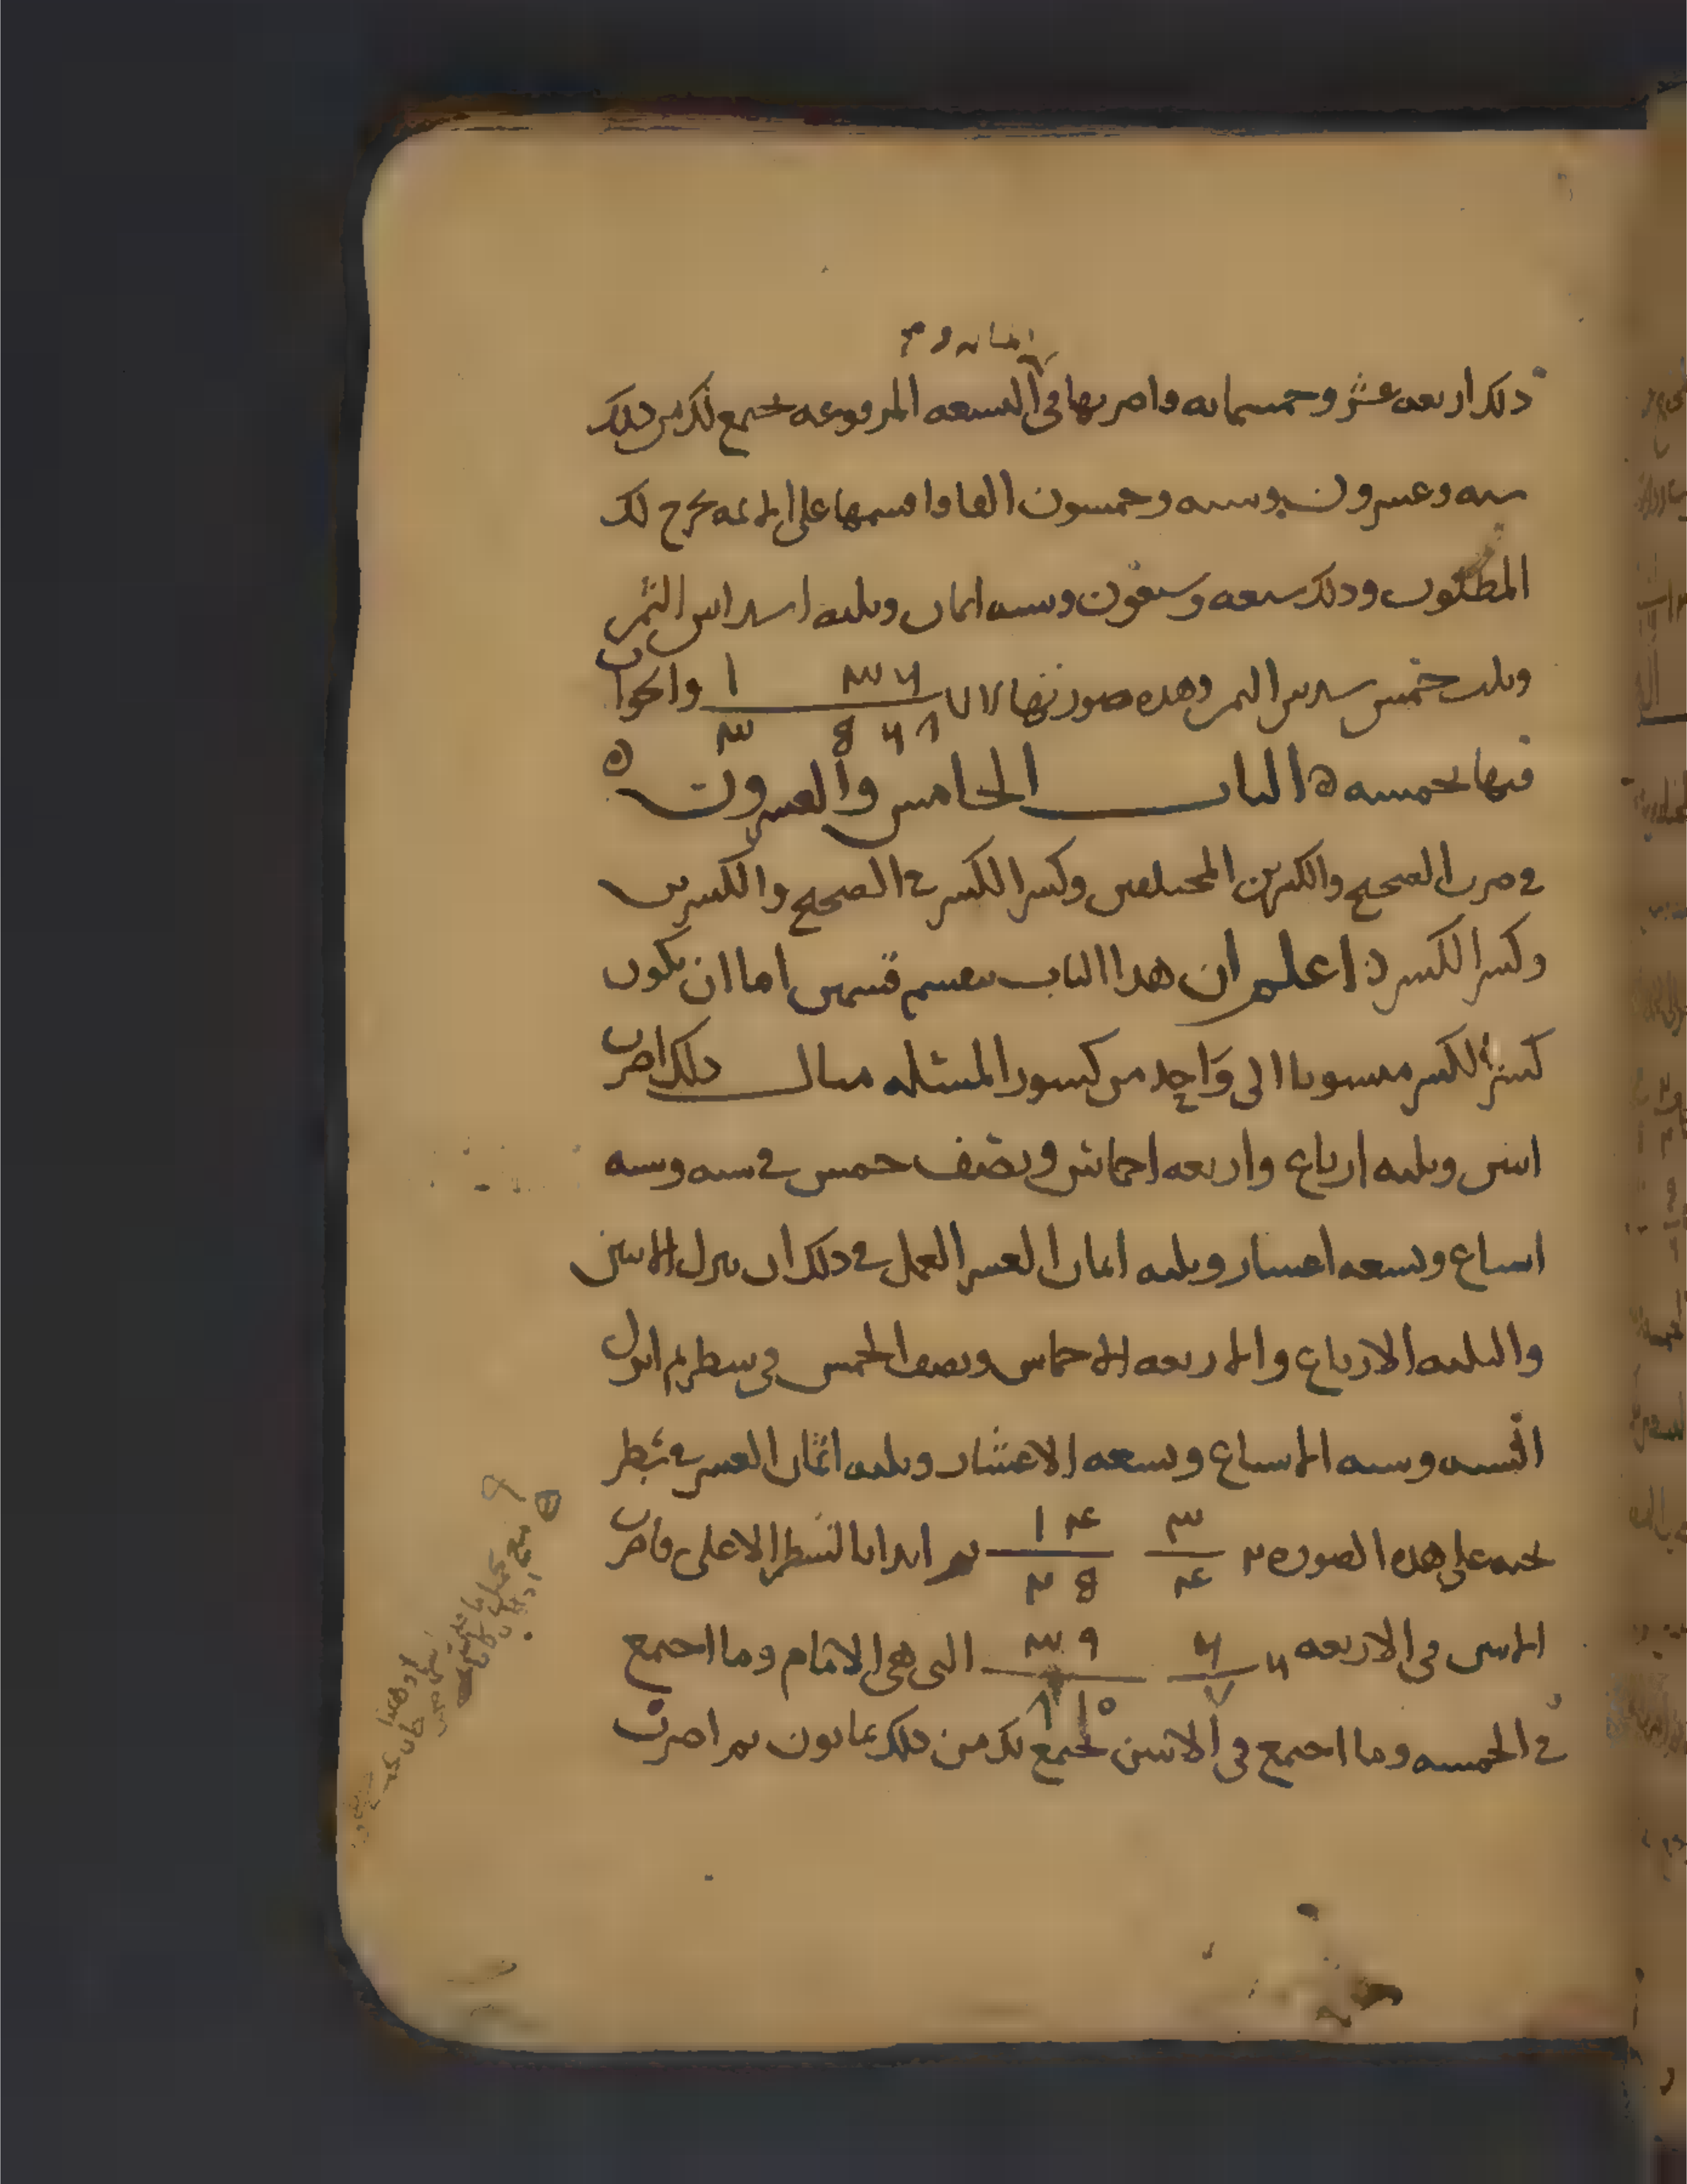 ذلك اربعه عشر وخمسمايه واضربها في التسعه المرفوعه تجتمع لك من ذلك
سته وعشرون وسته وخمسون الفا واقسمها على الائمه يخرج لك
المطلوب وذلك سبعه وسبعون وسته اثمان وثلثه اسداس الثمن
وثلث خمس سدس الثمن وهذه صورتها ٧٧ ٦ ٣ ١ والجواب
٨ ٦ 8 ٣
فيها بخمسه ه الباب الخامس والعشرون ه
في ضرب الصحيح والكسرين المختلفين وكسر الكسر في الصحيح والكسرين
وكسر الكسر ه اعلم ان هذا الباب ينقسم قسمين اما ان يكون
كسر الكسر منسوبا الى واحد من كسور المسئله مثال ذلك اضرب
اثنين وثلثه ارباع واربعه اخماس ونصف خمس في سته وسته
اسباع وتسعه اعشار وثلثه اثمان العشر العمل في ذلك ان تنزل الاثنين
والثلثه الارباع والاربعه الاخماس ونصف الخمس في سطر ثم انزل
الستة وسته الاسباع وتسعه الاعشار وثلثه اثمان العشر في سطر
تحته على هذه الصوره ٢ ٣ ٤ ١ ثم ابدا بالسطر الاعلى فاضرب
٤ 8 ٢
الاثنين في الاربعه ٦ ٦ ٩ ٣ التي هي الامام وما اجتمع
٧ ١٠ ٨
في الخمسه وما اجتمع في الاثنين تجتمع لك من ذلك ثمانون ثم اضرب